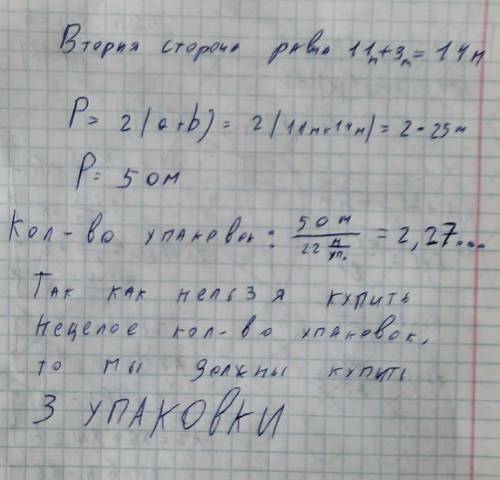 Вторая сторона равна 11м+3м = 14м
P = 2(a+b) = 2(11м+14м) = 2·25м
P = 50м
Кол-во упаковок: 50м / 22 м/уп. = 2,27...
Так как нельзя купить
нецелое кол-во упаковок,
то мы должны купить
3 УПАКОВКИ